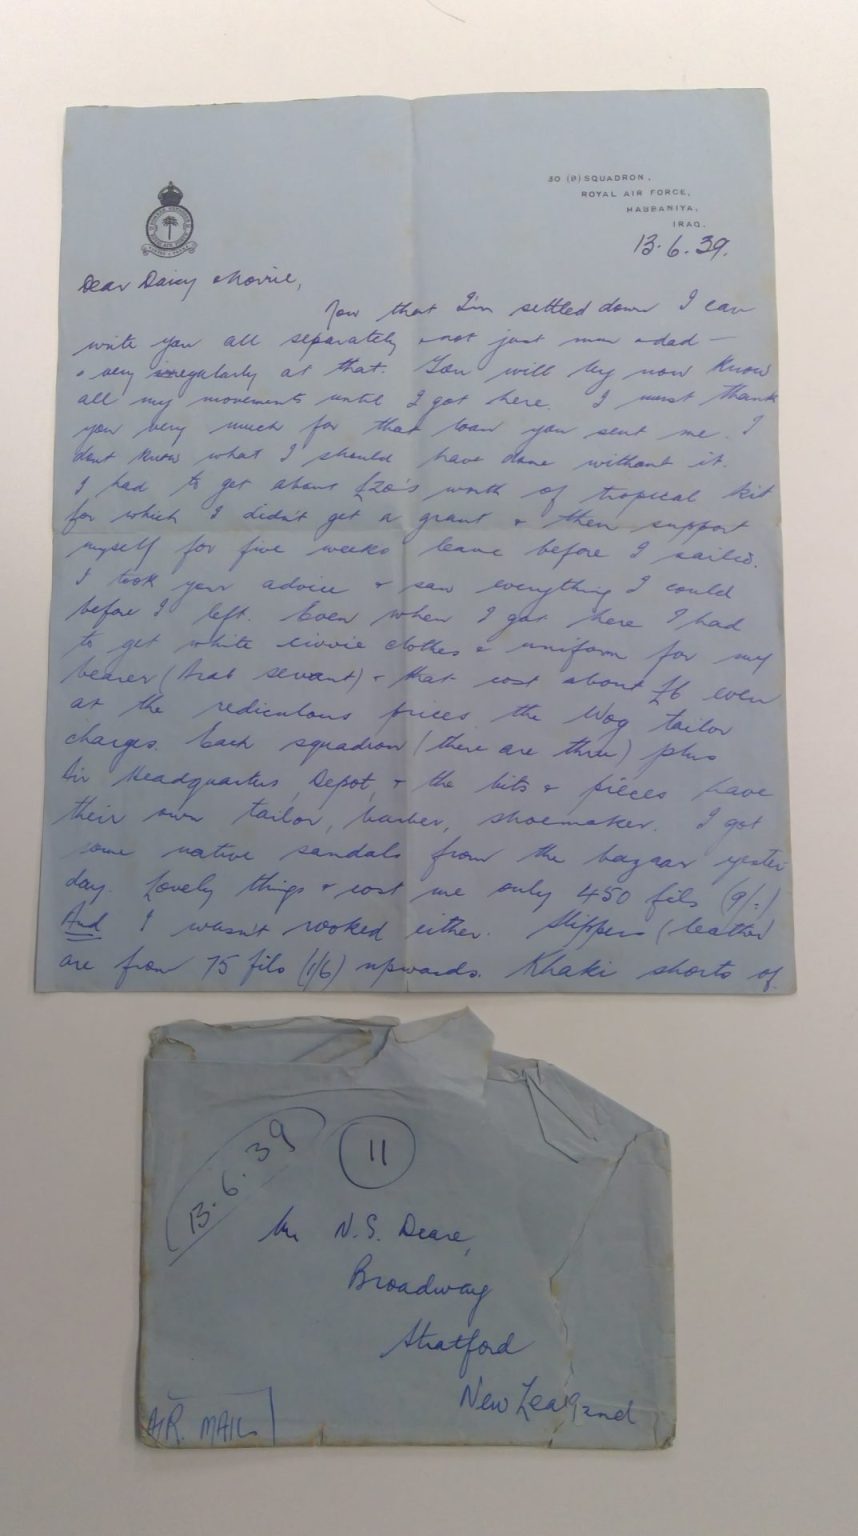 30 (B) SQUADRON,
ROYAL AIR FORCE,
HABBANIYA,
IRAQ.
13.6.39.
Dear Daisy & Norrie,
Now that I'm settled down I can
write you all separately & not just mum & dad —
& very irregularly at that. You will by now know
all my movements until I got here. I must thank
you very much for that loan you sent me. I
dont know what I should have done without it.
I had to get about £20's worth of tropical kit
for which I didn't get a grant & then support
myself for five weeks leave before I sailed.
I took your advice & saw everything I could
before I left. Even when I got here I had
to get white civvie clothes & uniform for my
bearer (Arab servant) & that cost about £6 even
at the rediculous prices the Wog tailor
charges. Each squadron (there are three) plus
Air Headquarters, Depot, & the bits & pieces have
their own tailor, barber, shoemaker. I got
some native sandals from the bazaar yester
day. Lovely things & cost me only 450 fils (9/-)
And I wasn't rooked either. Slippers (leather)
are from 75 fils (1/6) upwards. Khaki shorts of
13.6.39
11
Mr N.S. Deare,
Broadway
Stratford
New Zealand
AIR MAIL